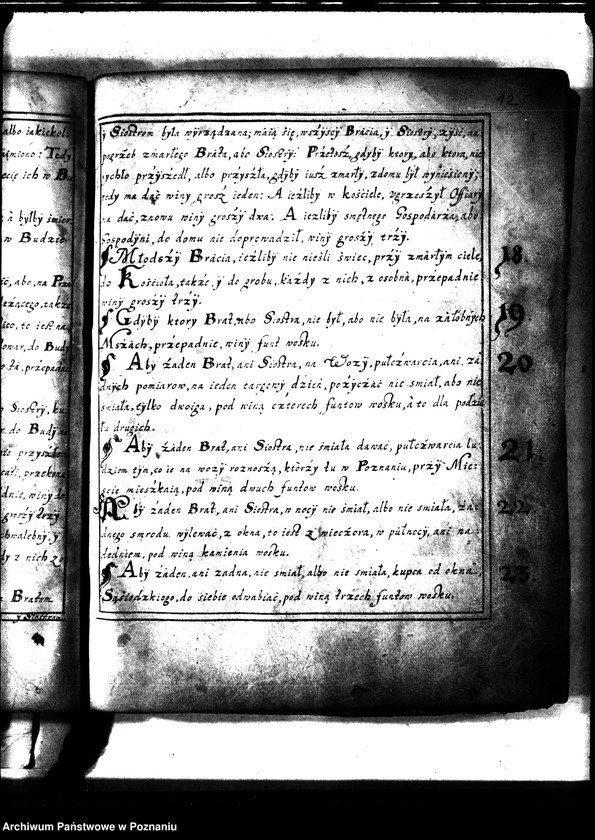 albo iakickol
Tedy
ecie ich w Bu
á byłby śmier
w Budzie
ić, abo, na Prze
leżącego, także
iaco, to iest na
towar, do Budy
przepadać
y Siostry, ku
do Budy
przyszed
przekona
dnie, winy do
groszy trzy
chwalebny, y
dy z nich zo
Bratom
y Siostrom
12
ÿ Siostrom była wyrządzana; maią się, wszyscy Brácia, ÿ Siostry, zyść, na
pogrzeb zmarłego Bráta, abo Siostry: Przetosz, gdyby ktory, abo ktora, nie
rychło przyszedł, albo przyszła, gdyby iusz zmarły, z domu był wyniesiony;
tedy ma dać winy grosz ieden: A ieźliby w kościele, vgrzeszył Offiary
na dać, znowu winy groszy dwa: A iezliby smętnego Gospodárza, abo
Gospodyni, do domu nie doprewadził, winy groszy trzy.
Młodszy Brácia, ieźliby nie nieśli świec, przy zmártym ciele, 18.
do Kościoła, także ÿ do grobu, każdy z nich, z osobná, przepadnie
winy groszy trzy.
Gdyby ktory Brat, abo Siostra, nie był, abo nie była, na załobnych 19
Mszách, przepadnie, winy funt wosku.
Aby żaden Brat, ani Siostra, na Wozy, pułczwarcia, ani, żá 20
dnych pomiarow, na ieden targony dzień, pożyczáć nie smiał, abo nie
śmiała, tylko dwoiga, pod winą czterech funtow wosku, á to dla podziá
łu drugich.
Aby żaden Brat, ani Siostra, nie śmiała dawać, pułczwarcia lu 21.
dziom tym, co ie na wozy roznoszą, ktorzy tu w Poznaniu, przy Mie
ście mieszkaią, pod winą dwuch funtow wosku.
Aby żaden Brat, ani Siostra, w nocy nie śmiał, albo nie smiała, żá 22.
dnego smrodu wylewáć, z okna, to iest z wieczora, w pułnocy, ani na
dedniem, pod winą kamienia wosku.
Aby żaden, ani żadna, nie smiał, albo nie smiała, kupca od okna 23.
Sąsiedzkiego, do siebie odwabiáć, pod winą trzech funtow wosku,
Archiwum Państwowe w Poznaniu